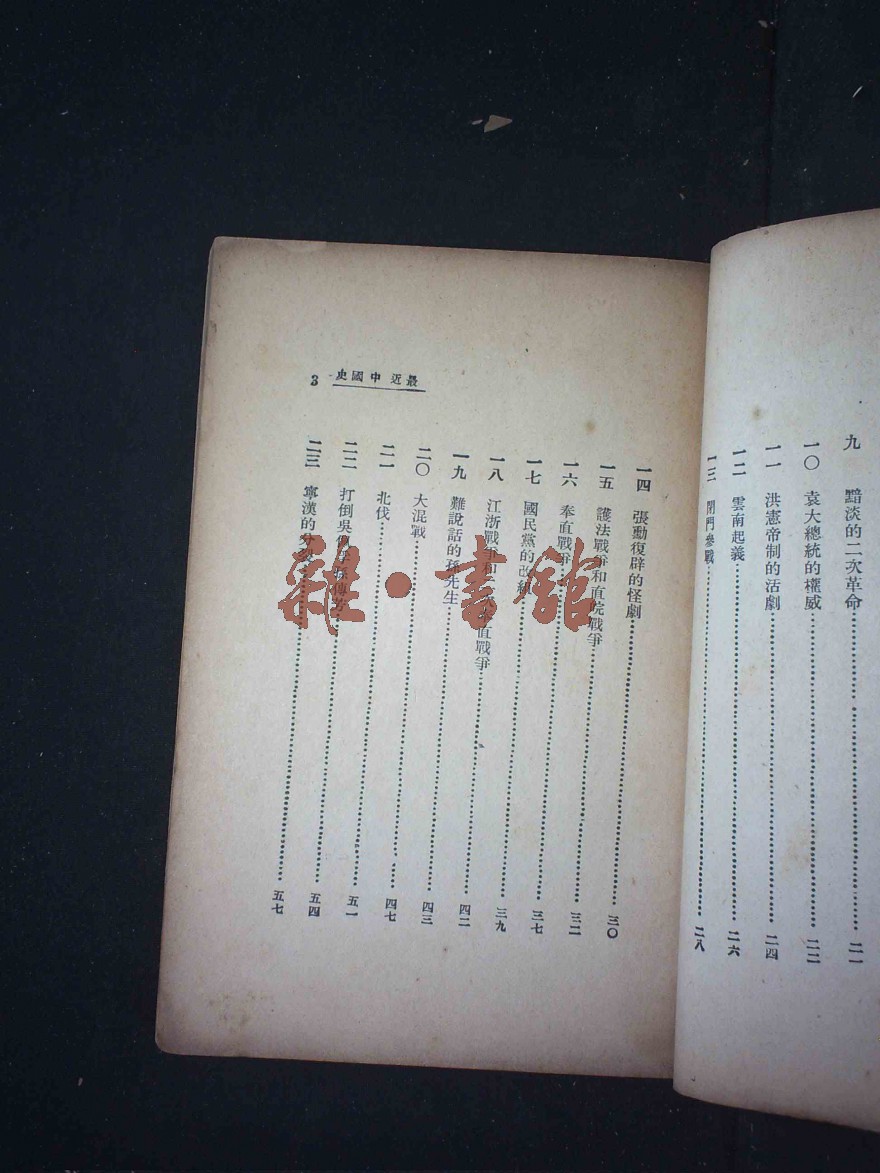 九 黯淡的二次革命……二一
一〇 袁大總統的權威……二二
一一 洪憲帝制的活劇……二四
一二 雲南起義……二六
一三 閉門參戰……二八
最近中國史 3
一四 張勳復辟的怪劇……三〇
一五 護法戰爭和直皖戰爭……三二
一六 奉直戰爭……三七
一七 國民黨的改組……三九
一八 江浙戰爭和 直戰爭……四二
一九 難說話的孫先生……四三
二〇 大混戰……四七
二一 北伐……五一
二二 打倒吳 孫傳芳……五四
二三 寧漢的分裂……五七
雜·書館